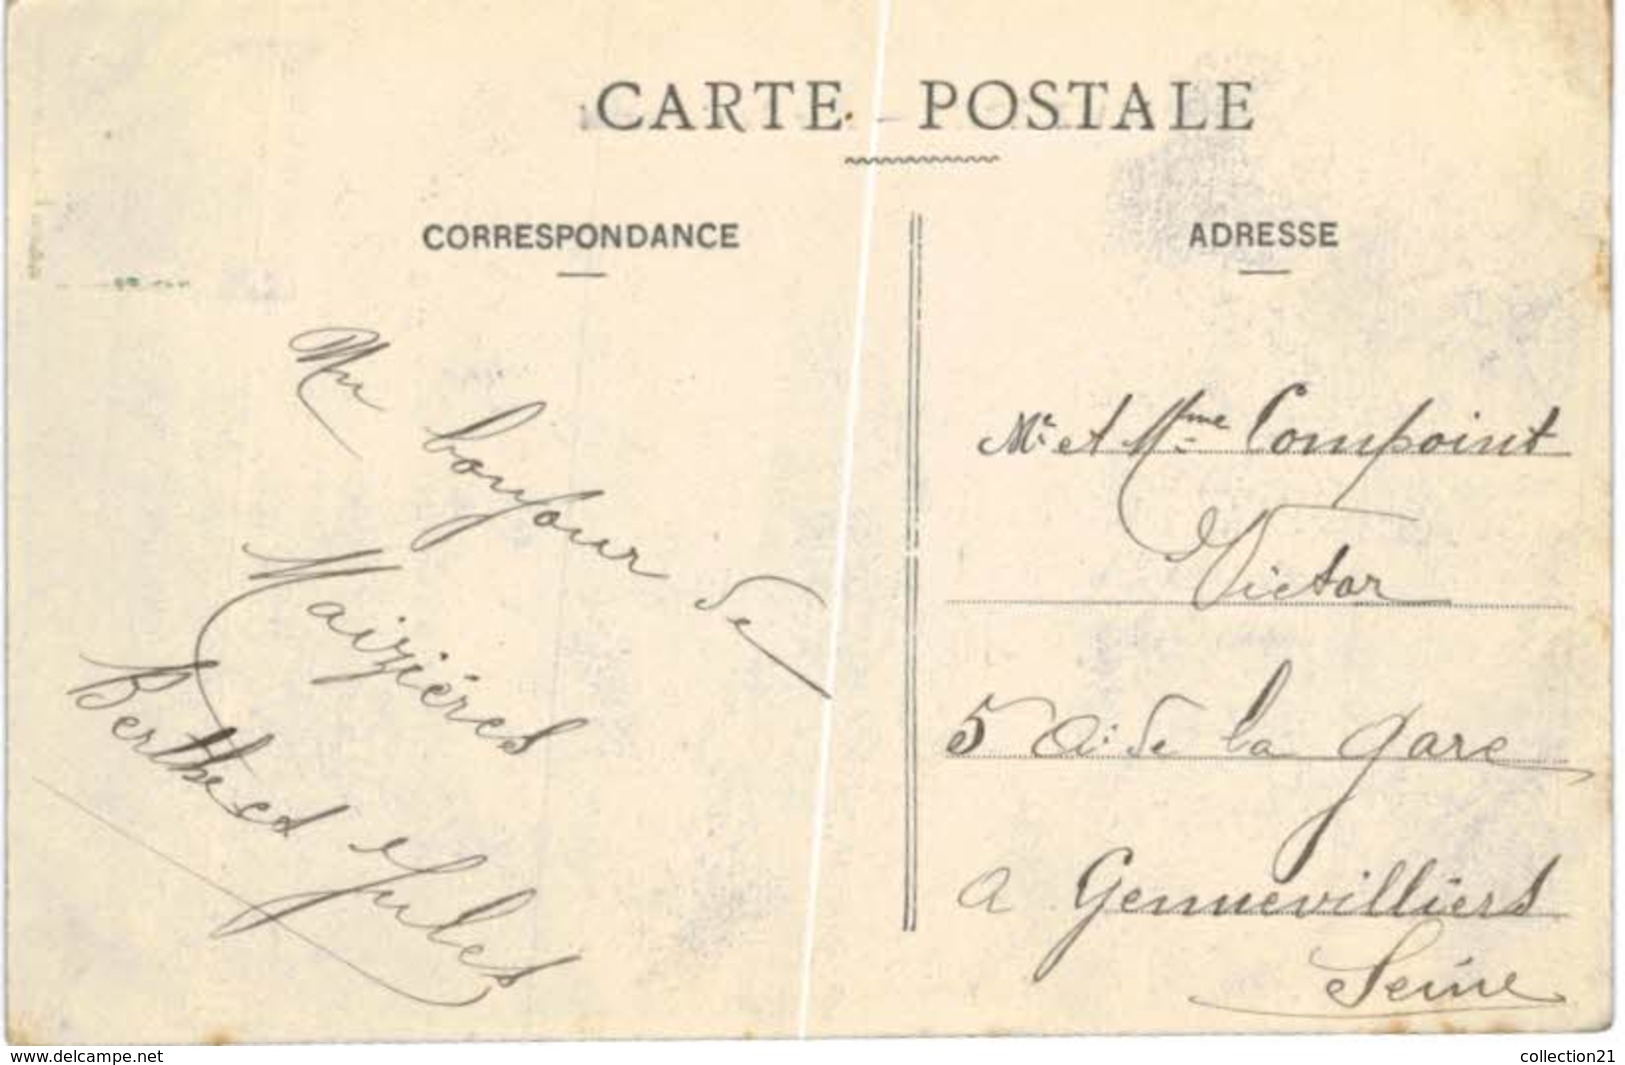 CARTE POSTALE
CORRESPONDANCE
Un bonjour de
Maizières
Berthe et Jules
ADRESSE
Mr et Mme Compoint
Victor
5 a: de la gare
a Gennevilliers
Seine
www.delcampe.net
collection21